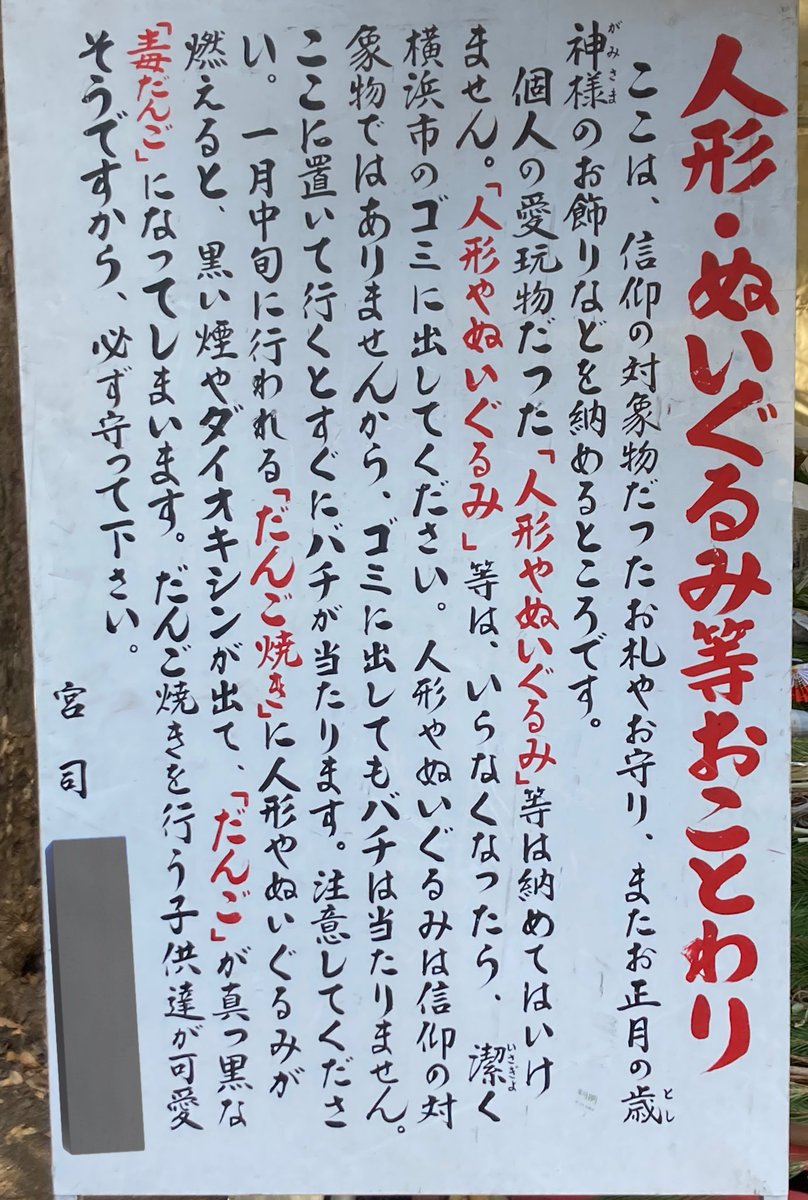 人形・ぬいぐるみ等おことわり
ここは、信仰の対象物だったお札やお守り、またお正月の歳
神様のお飾りなどを納めるところです。
個人の愛玩物だった「人形やぬいぐるみ」等は納めてはいけ
ません。「人形やぬいぐるみ」等は、いらなくなったら、潔く
横浜市のゴミに出してください。人形やぬいぐるみは信仰の対
象物ではありませんから、ゴミに出してもバチは当たりません。
ここに置いて行くとすぐにバチが当たります。注意してくださ
い。一月中旬に行われる「だんご焼き」に人形やぬいぐるみが
燃えると、黒い煙やダイオキシンが出て、「だんご」が真っ黒な
「毒だんご」になってしまいます。だんご焼きを行う子供達が可愛
そうですから、必ず守って下さい。
宮司